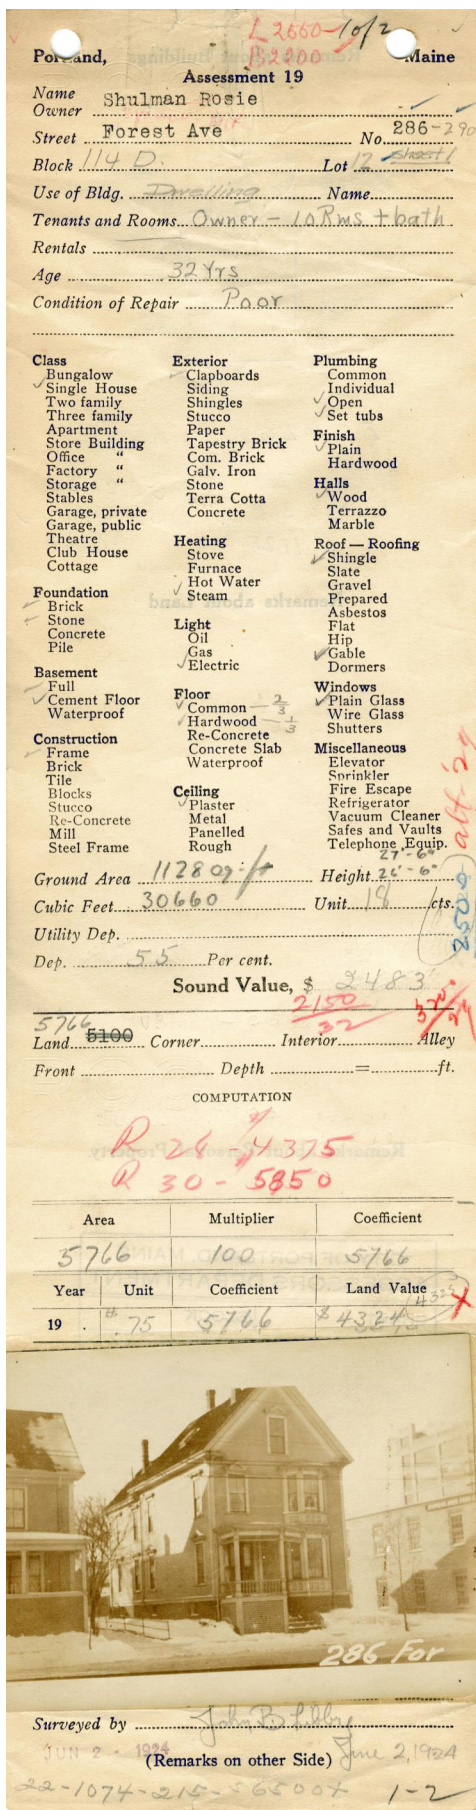 L 2660 1 of 2
B 2200
Portland, Maine
Assessment 19
Name
Owner Shulman Rosie
Street Forest Ave No. 286-290
Block 114 D. Lot 12 sheet 1
Use of Bldg. Dwelling Name
Tenants and Rooms Owner - 10 Rms + bath
Rentals
Age 32 Yrs
Condition of Repair Poor
Class
Bungalow
Single House
Two family
Three family
Apartment
Store Building
Office "
Factory "
Storage "
Stables
Garage, private
Garage, public
Theatre
Club House
Cottage
Foundation
Brick
Stone
Concrete
Pile
Basement
Full
Cement Floor
Waterproof
Construction
Frame
Brick
Tile
Blocks
Stucco
Re-Concrete
Mill
Steel Frame
Exterior
Clapboards
Siding
Shingles
Stucco
Paper
Tapestry Brick
Com. Brick
Galv. Iron
Stone
Terra Cotta
Concrete
Heating
Stove
Furnace
Hot Water
Steam
Light
Oil
Gas
Electric
Floor
Common - 2/3
Hardwood - 1/3
Re-Concrete
Concrete Slab
Waterproof
Ceiling
Plaster
Metal
Panelled
Rough
Plumbing
Common
Individual
Open
Set tubs
Finish
Plain
Hardwood
Halls
Wood
Terrazzo
Marble
Roof — Roofing
Shingle
Slate
Gravel
Prepared
Asbestos
Flat
Hip
Gable
Dormers
Windows
Plain Glass
Wire Glass
Shutters
Miscellaneous
Elevator
Sprinkler
Fire Escape
Refrigerator
Vacuum Cleaner
Safes and Vaults
Telephone Equip.
27'-6"
Ground Area 1128 Height 26'-6"
Cubic Feet 30660 Unit 18 cts.
2500
Utility Dep.
Dep. 55 Per cent.
Sound Value, $ 2483
2150
32
5766
Land 5100 Corner Interior Alley
Front Depth = ft.
COMPUTATION
R 26 - $4375
R 30 - $5850
Area Multiplier Coefficient
5766 100 5766
Year Unit Coefficient Land Value
4325
19 $.75 5766 $4324 X
286 For
Surveyed by John B Libby
JUN 2 - 1924
June 2, 1924
(Remarks on other Side)
22-1074-215-56500+ 1-2